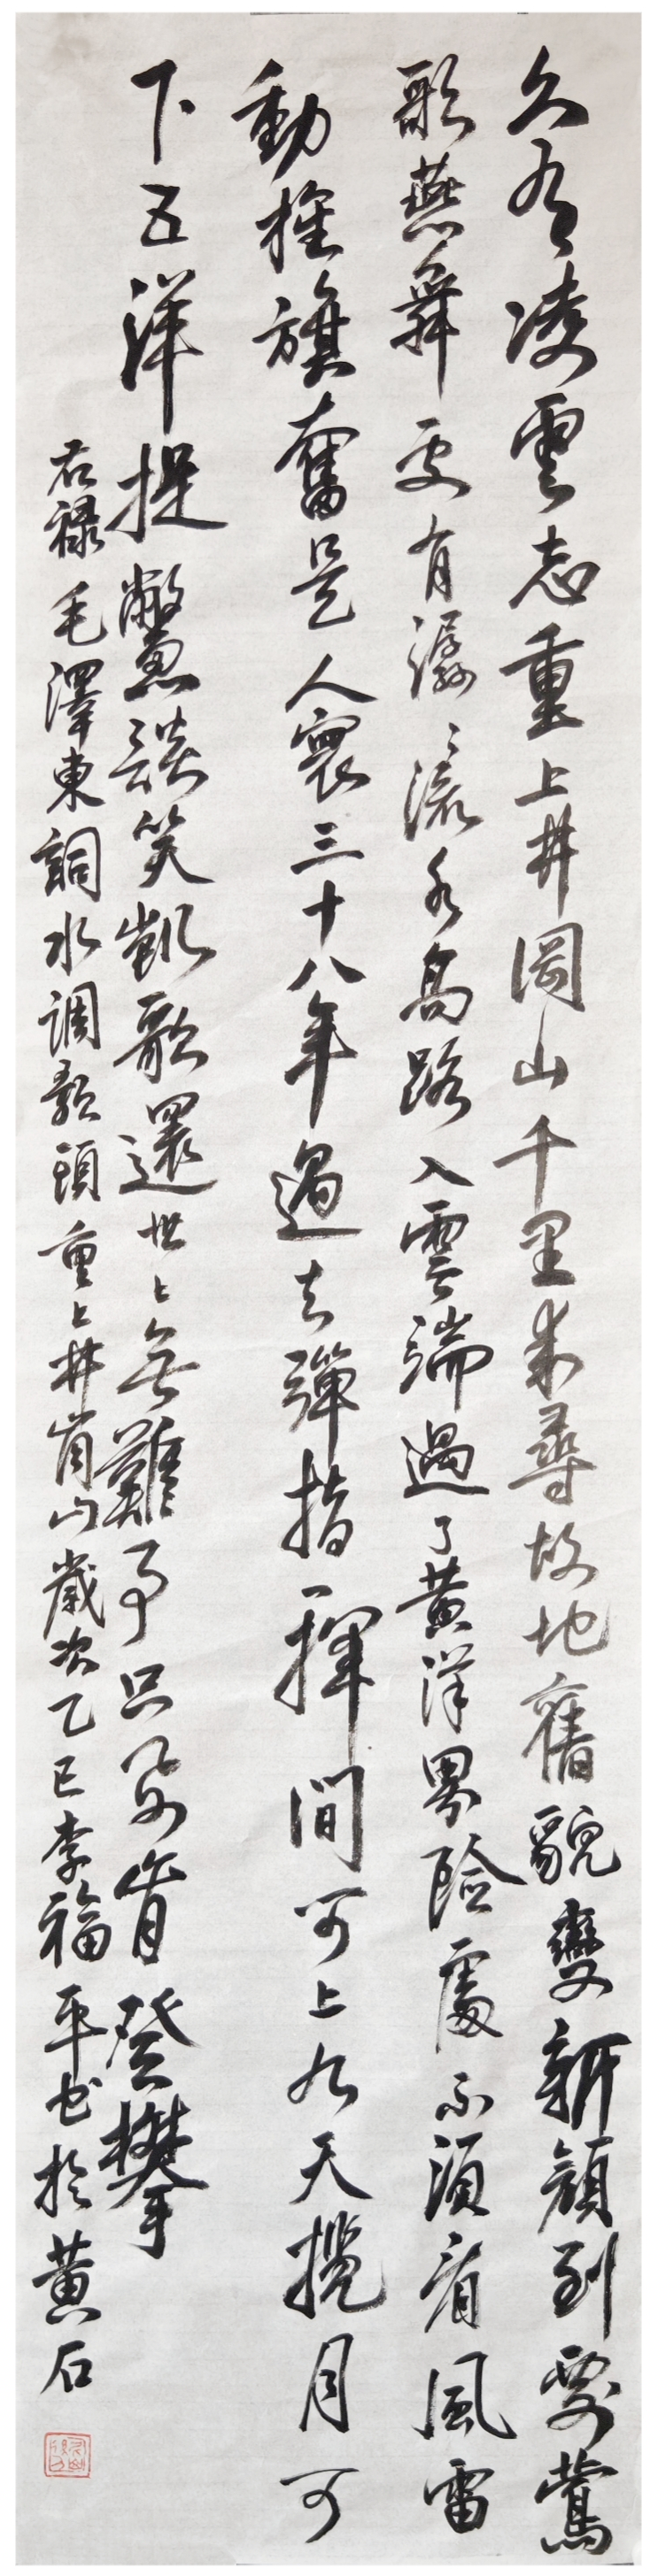 久有凌雲志重上井岡山千里来尋故地舊貌變新顏到處鶯
歌燕舞更有潺〻流水高路入雲端過了黃洋界險處不須看風雷
動旌旗奮是人寰三十八年過去彈指一揮間可上九天攬月可
下五洋捉鱉談笑凱歌還世〻無難事只要肯登攀
右禄毛澤東詞水调歌頭重上井崗山歲次乙巳李福平书於黄石